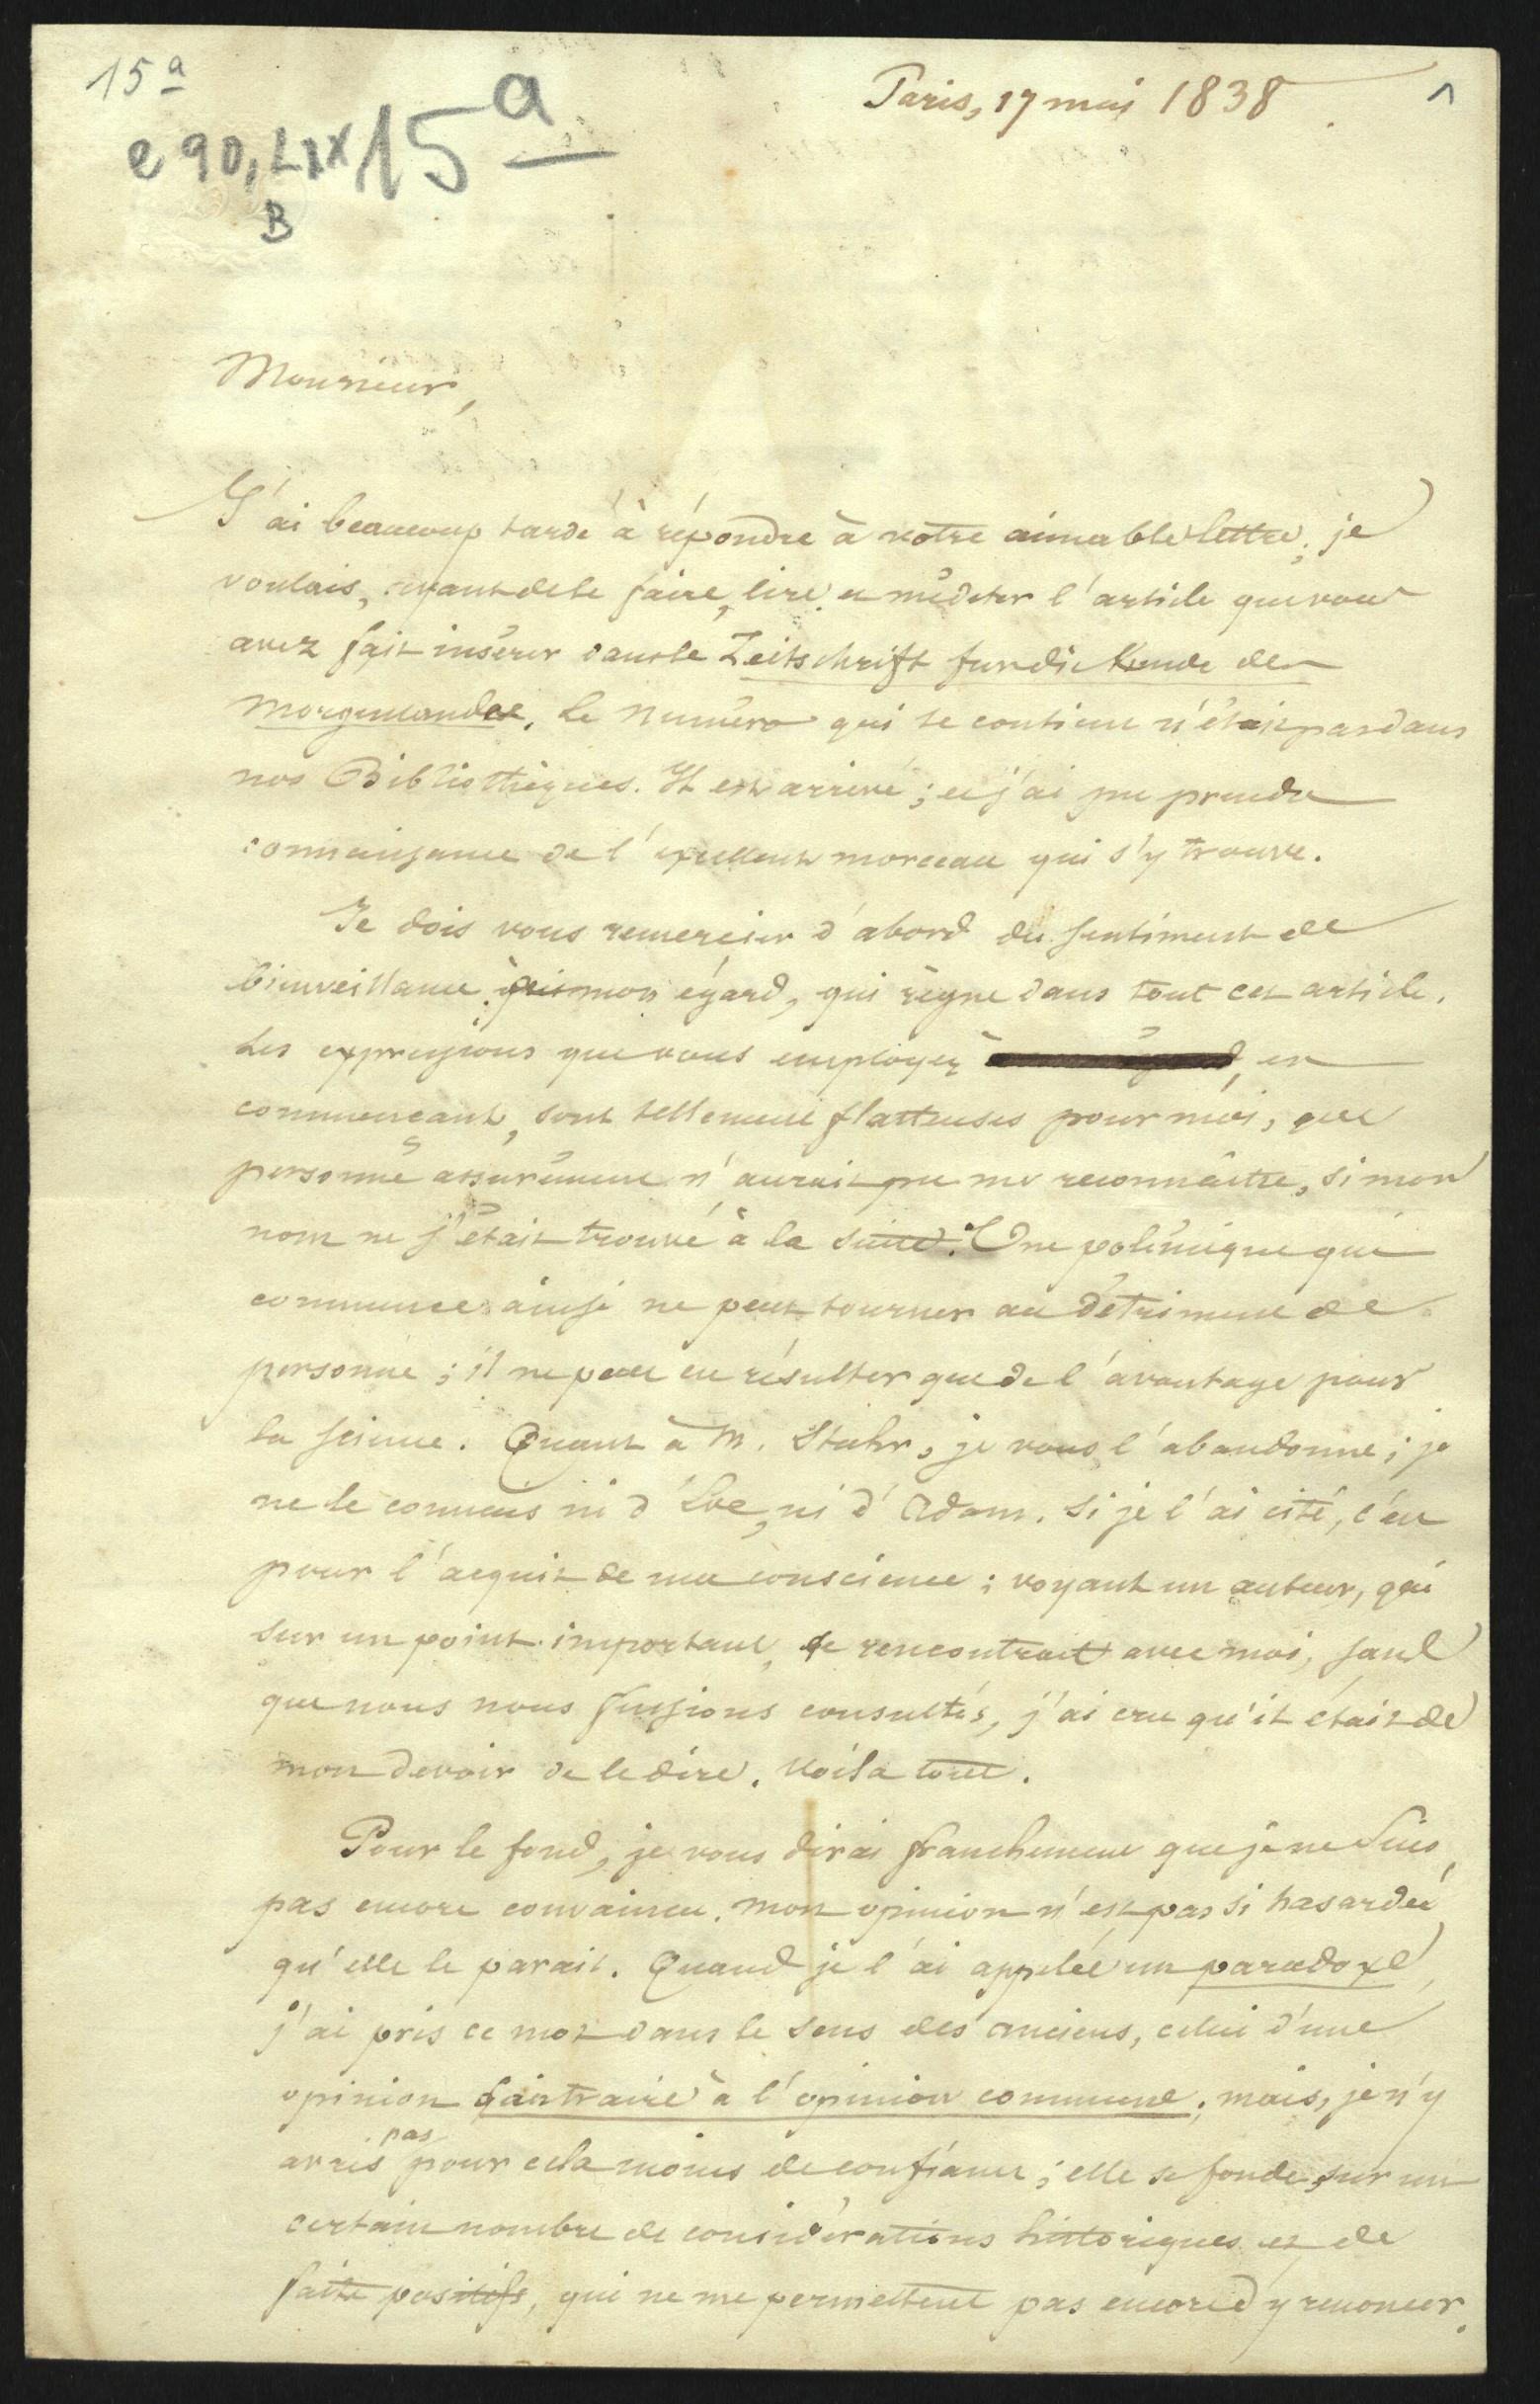 15a
e 90, LIX 15a
B
Paris, 17 mai 1838
1
Monsieur,
J'ai beaucoup tardé à répondre à votre aimable lettre; je
voulais, avant de le faire, lire et méditer l'article que vous
avez fait insérer dans le Zeitschrift fur die Kunde des
Morgenlandes. Le Numéro qui le contient n'était pas dans
nos Bibliothèques. Il est arrivé; et j'ai pu prendre
connaissance de l'excellent morceau qui s'y trouve.
Je dois vous remercier d'abord du sentiment de
bienveillance à mon égard, qui règne dans tout cet article.
Les expressions que vous employez, en
commençant, sont tellement flatteuses pour moi, que
personne assurément n'aurait pu me reconnaître, si mon
nom ne s'était trouvé à la suite. Une polémique qui
commence ainsi ne peut tourner au détriment de
personne; il ne peut en résulter que de l'avantage pour
la science. Quant à M. Stuhr, je vous l'abandonne; je
ne le connais ni d'Eve, ni d'Adam. Si je l'ai cité, c'est
pour l'acquit de ma conscience; voyant un auteur, qui
sur un point important, se rencontrait avec moi, sans
que nous nous fussions consultés, j'ai cru qu'il était de
mon devoir de le dire. Voilà tout.
Pour le fond, je vous dirai franchement que je ne suis
pas encore convaincu. Mon opinion n'est pas si hasardée
qu'elle le parait. Quand je l'ai appelée un paradoxe,
j'ai pris ce mot dans le sens des anciens, celui d'une
opinion contraire à l'opinion commune; mais, je n'y
avais pas pour cela moins de confiance; elle se fonde sur un
certain nombre de considérations historiques et de
faits positifs, qui ne me permettent pas encore d'y renoncer.